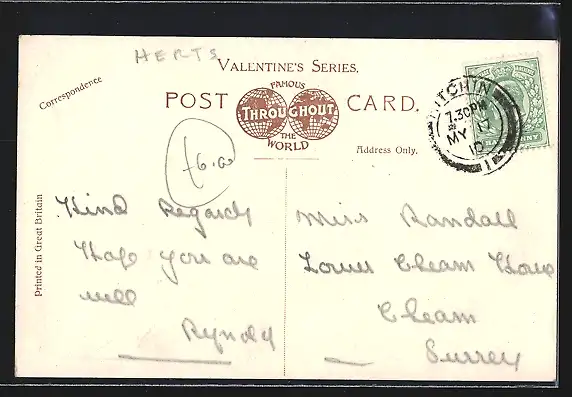 HERTS
VALENTINE'S SERIES.
Correspondence
POST CARD.
FAMOUS
THROUGHOUT
THE
WORLD
Address Only.
HITCHIN
7.30PM
MY 17
10
£6.00
Printed in Great Britain
Kind Regards
Hope you are
well
Miss Randall
Lower Cheam House
Cheam
Surrey